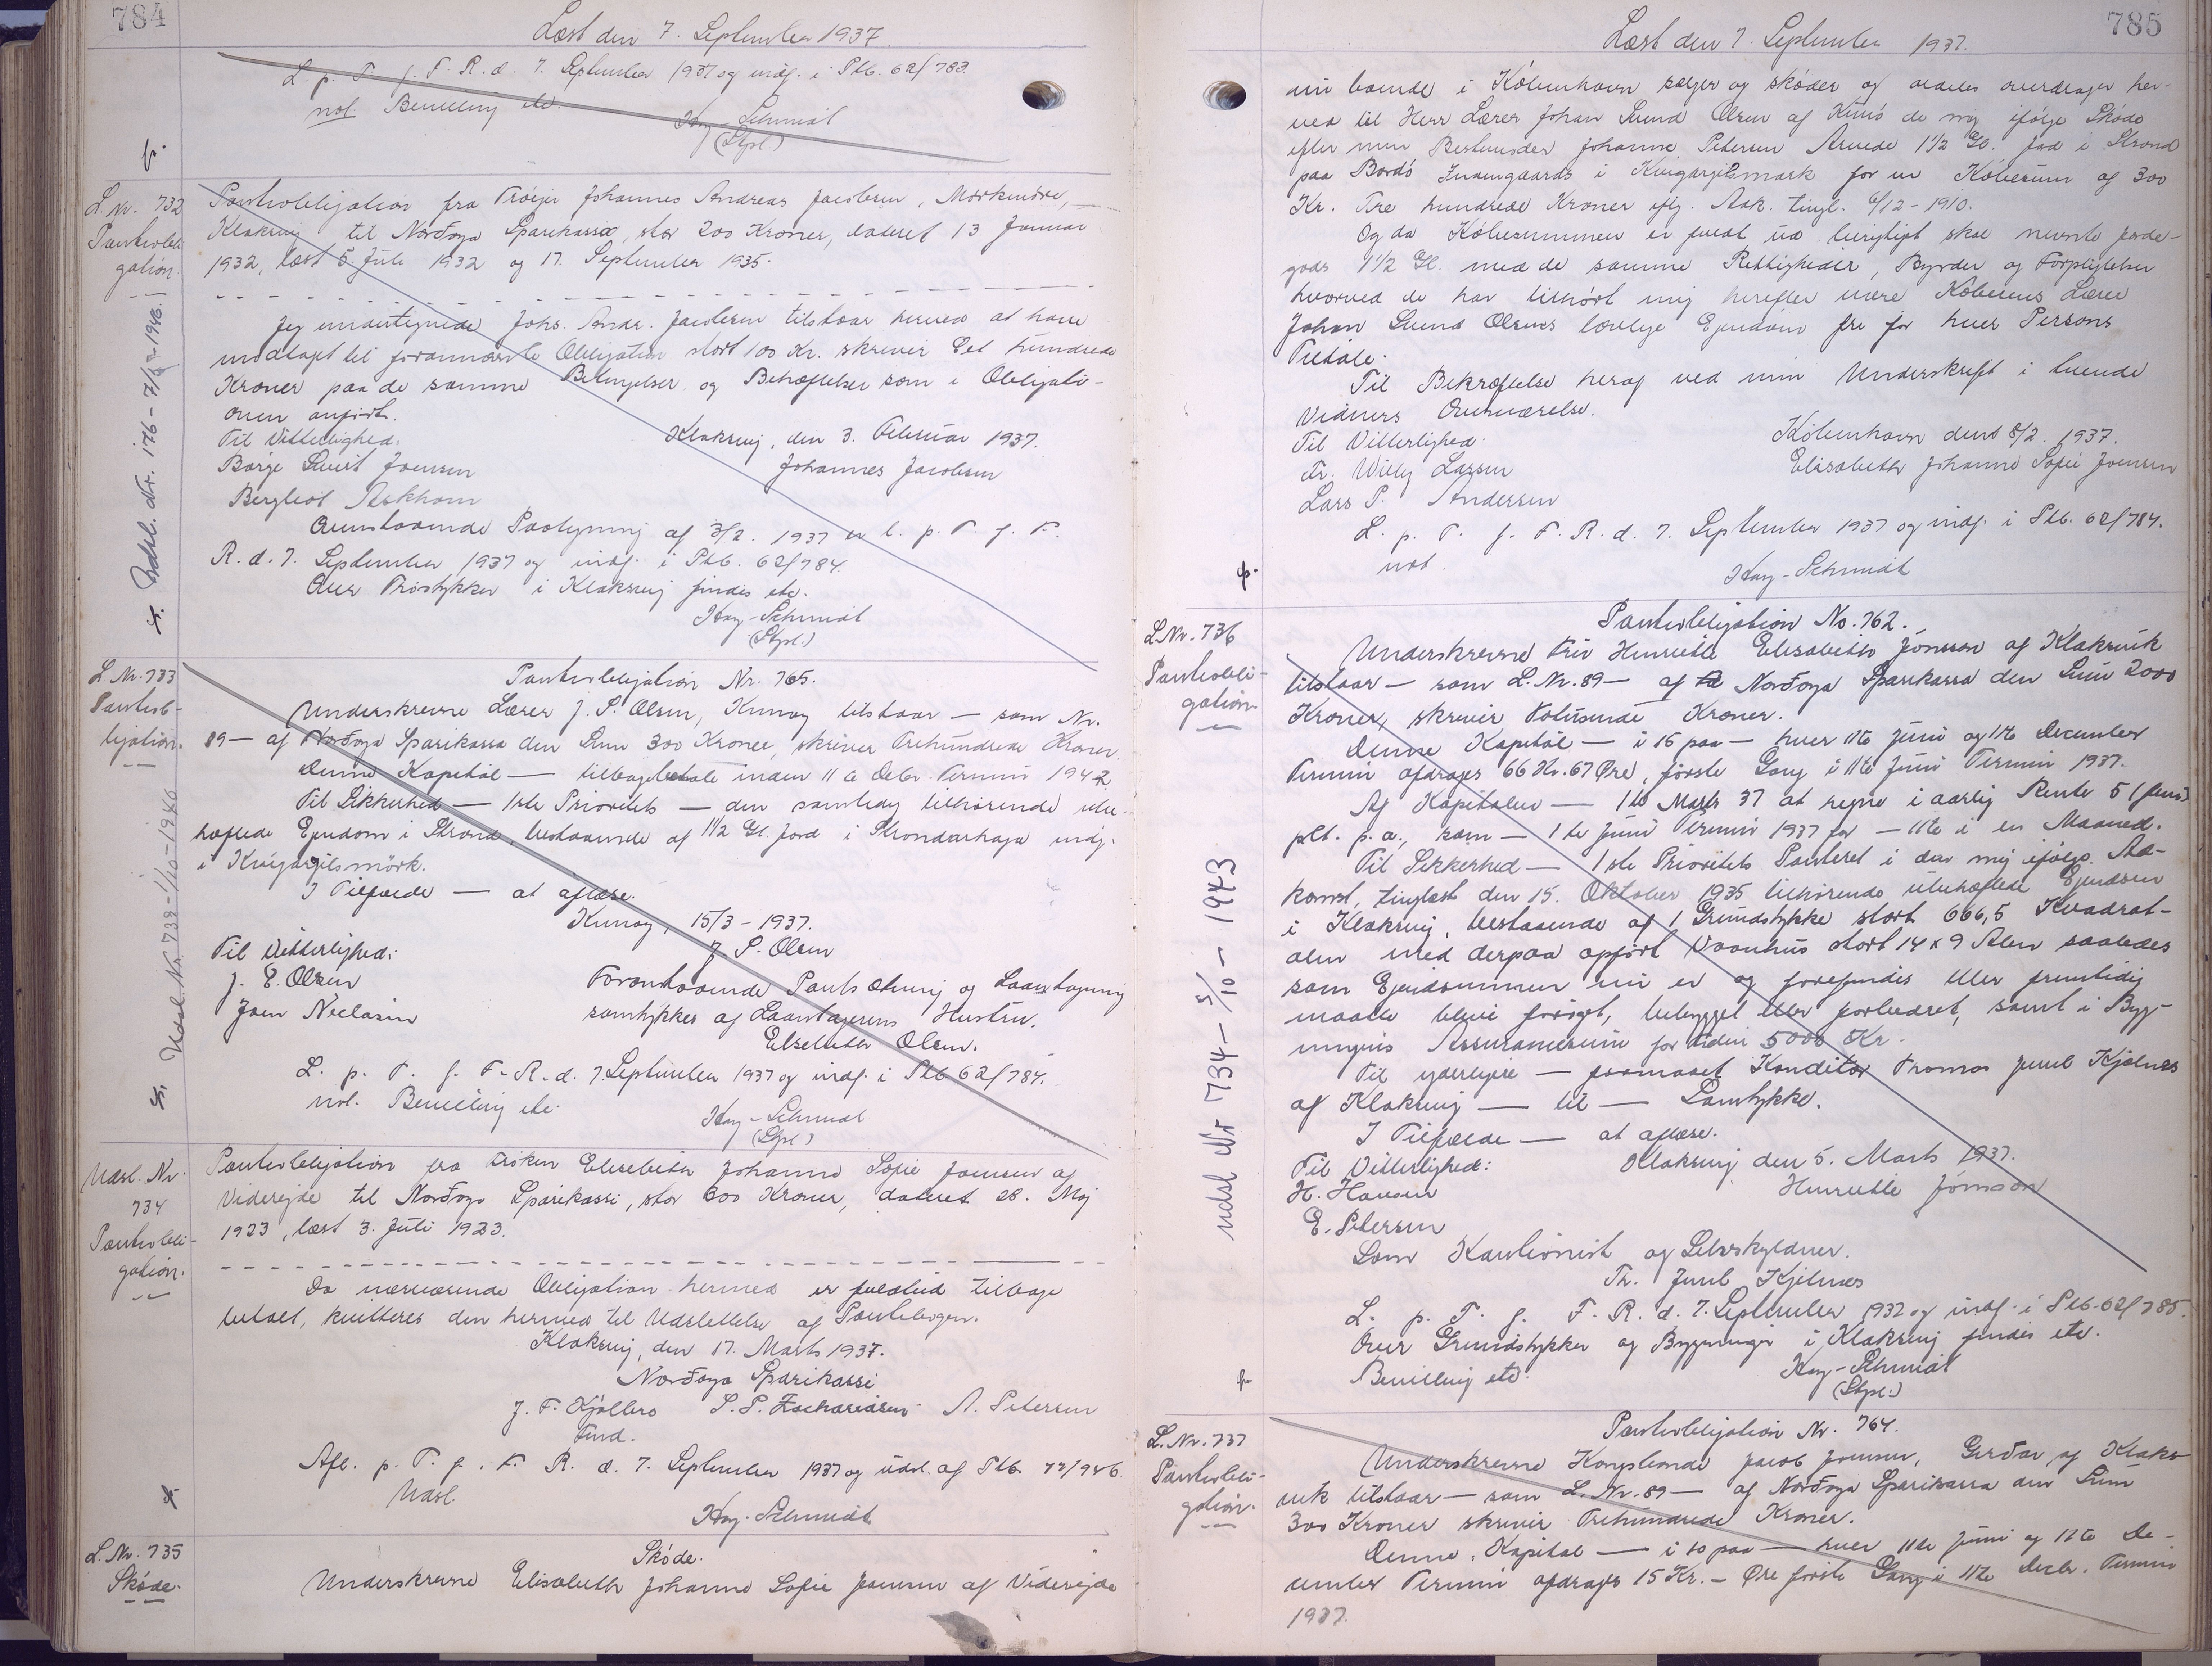 784
Læst den 7. September 1937.
L. p. T. f. F. R. d. 7. September 1937 og indf. i Ptb. 62/783.
not. Bevilling etc.
Kay-Schmidt
(Stpl.)
L. Nr. 732
Pantobli-
gation.
Pantobligation fra Tróeji Johannes Andreas Jacobsen, Morkinóre,
Klaksvig til Norðoya Sparikassa, stor 200 Kroner, dateret 13 Januar
1932, læst 5. Juli 1932 og 17. September 1935.
Jeg undertegnede Johs. Andr. Jacobsen tilstaar herved at have
modtaget til forannævnte Obligation stort 100 Kr. skriver Et hundrede
Kroner paa de samme Betingelser og Behæftelser som i Obligati-
onen anført.
Til Vitterlighed:
Klaksvig, den 3. Februar 1937.
Børge Juul Joensen
Johannes Jacobsen
Bergliot Askham
Ovenstaaende Paategning af 3/2. 1937 er l. p. T. f. F.
R. d. 7. September 1937 og indf. i Ptb. 62/784.
Over Tróstykker i Klaksvig findes etc.
Kay-Schmidt
(Stpl.)
Udsl. Nr. 176 - 7/5-1946.
L. Nr. 733
Pantob-
ligation.
Pantobligation Nr. 765.
Underskrevne Lærer J. S. Olsen, Kunoy tilstaar — som Nr.
89 — af Norðoya Sparikassa den Sum 300 Kroner, skriver Trehundrede Kroner.
Denne Kapital — tilbagebetale inden 11te Decbr. Termin 1942
Til Sikkerhed — 1ste Prioritets — den samtidig tilhørende ube-
hæftede Ejendom i Strond, bestaaende af 1 1/2 Gl. Jord i Strondarhaga indg.
i Kvigargilsmörk.
I Tilfælde — at aflæse.
Kunoy, 15/3 - 1937.
Til Vitterlighed:
J. S. Olsen
J. E. Olsen
Foranstaaende Pantsætning og Laantagning
Joen Niclasen
samtykkes af Laantagerens Hustru.
Elsebeth Olsen.
L. p. T. f. F. R. d. 7. September 1937 og indf. i Ptb. 62/784.
not. Bevilling etc.
Kay-Schmidt
(Stpl.)
Udsl. Nr 738 - 1/10-1946
Udsl. Nr.
734
Pantobli-
gation.
Pantobligation fra Frøken Elisabeth Johanne Sofie Joensen af
Viderejde til Norðoya Sparikassi, stor 600 Kroner, dateret 28. Maj
1923, læst 3. Juli 1923.
Da nærværende Obligation hermed er fuldtud tilbage
betalt, kvitteres den hermed til Udslettelse af Pantebogen.
Klaksvig, den 17. Marts 1937.
Norðoya Sparikassi
J. F. Kjølbro S. P. Zachariasen A. Petersen
Fmd.
Afl. p. T. f. F. R. d. 7. September 1937 og udsl. af Ptb.
Udsl.
Kay-Schmidt
L. Nr. 735
Skøde.
Skøde.
Underskrevne Elisabeth Johanne Sofie Joensen af Viderejde
785
Læst den 7. September 1937.
nu boende i København sælger og skøder og aldeles overdrager her-
ved til Herr Lærer Johan Lund Olsen af Kunö de mig ifølge Skøde
efter min Bestemoder Johanne Petersen Arvede 1 1/2 Gl. Jord i Strond
paa Bordö Indengaards i Kvigargilsmark for en Købesum af 300
Kr. Tre hundrede Kroner cfg. Adk. tingl. 6/12 - 1910.
Og da Købesummen er fuldt ud berigtiget skal nævnte Jorde-
gods 1 1/2 Gl. med de samme Rettigheder, Byrder og Forpligtelser
hvorved de har tilhørt mig herefter være Køberens Lærer
Johan Lund Olsens lovlige Ejendom fri for hver Persons
Tiltale.
Til Bekræftelse heraf ved min Underskrift i tvende
Vidners Overværelse.
Til Vitterlighed:
København dens 8/2. 1937.
Fr. Willy Larsen
Elisabeth Johanne Sofie Joensen
Lars P. Andersen
L. p. T. f. F. R. d. 7. September 1937 og indf. i Ptb. 62/784.
not.
Kay-Schmidt
L. Nr. 736
Pantobli-
gation.
Pantobligation No. 762.
Underskrevne Frú Henriette Elisabeth Jónsson af Klaksvik
tilstaar — som L. Nr. 89 — af Norðoya Sparikassa den Sum 2000
Kroner, skriver Totusinde Kroner.
Denne Kapital — i 15 paa — hver 11te Juni og 11te December
Termin afdrages 66 Kr. 67 Øre, første Gang i 11te Juni Termin 1937.
Af Kapitalen — 1te Marts 37 at regne i aarlig Rente 5 (fem)
pCt. p. a., som — 11te Juni Termin 1937 for — 11te i en Maaned.
Til Sikkerhed — 1ste Prioritets Panteret i den mig ifølge Ad-
komst, tinglæst den 15. Oktober 1935 tilhørende ubehæftede Ejendom
i Klaksvig, bestaaende af 1 Grundstykke stort 666,5 Kvadrat-
alen med derpaa opført Vaanhus stort 14 x 9 Alen saaledes
som Ejendommen nu er og forefindes eller fremtidig
maatte blive forøget, bebygget eller forbedret, samt i Byg-
ningens Assurancesum for tiden 5000 Kr.
Til yderligere — formaaet Konditor Thomas Juul Kjølnes
af Klaksvig — til — Samtykke.
I Tilfælde — at aflæse.
Til Vitterlighed:
Klaksvig den 5. Marts 1937.
H. Hansen
Henriette Jónsson
E. Petersen
Som Kautionist og Selvskyldner.
Th. Juul Kjølnes
L. p. T. f. F. R. d. 7. September 1937 og indf. i Ptb. 62/785.
Over Grundstykker og Bygninger i Klaksvig findes etc.
Bevilling etc.
Kay-Schmidt
(Stpl.)
udsl Nr 734 - 5/10 - 1943
L. Nr. 737
Pantobli-
gation.
Pantobligation Nr. 764.
Underskrevne Kongsbonde Jacob Joensen, Gerðar af Klaks-
vik tilstaar — som L. Nr. 89 — af Norðoya Sparikassa den Sum
300 Kroner skriver Trehundrede Kroner.
Denne Kapital — i 10 paa — hver 11te Juni og 11te De-
cember Termin afdrages 15 Kr. - Øre første Gang i 11te Decbr. Termin
1937.